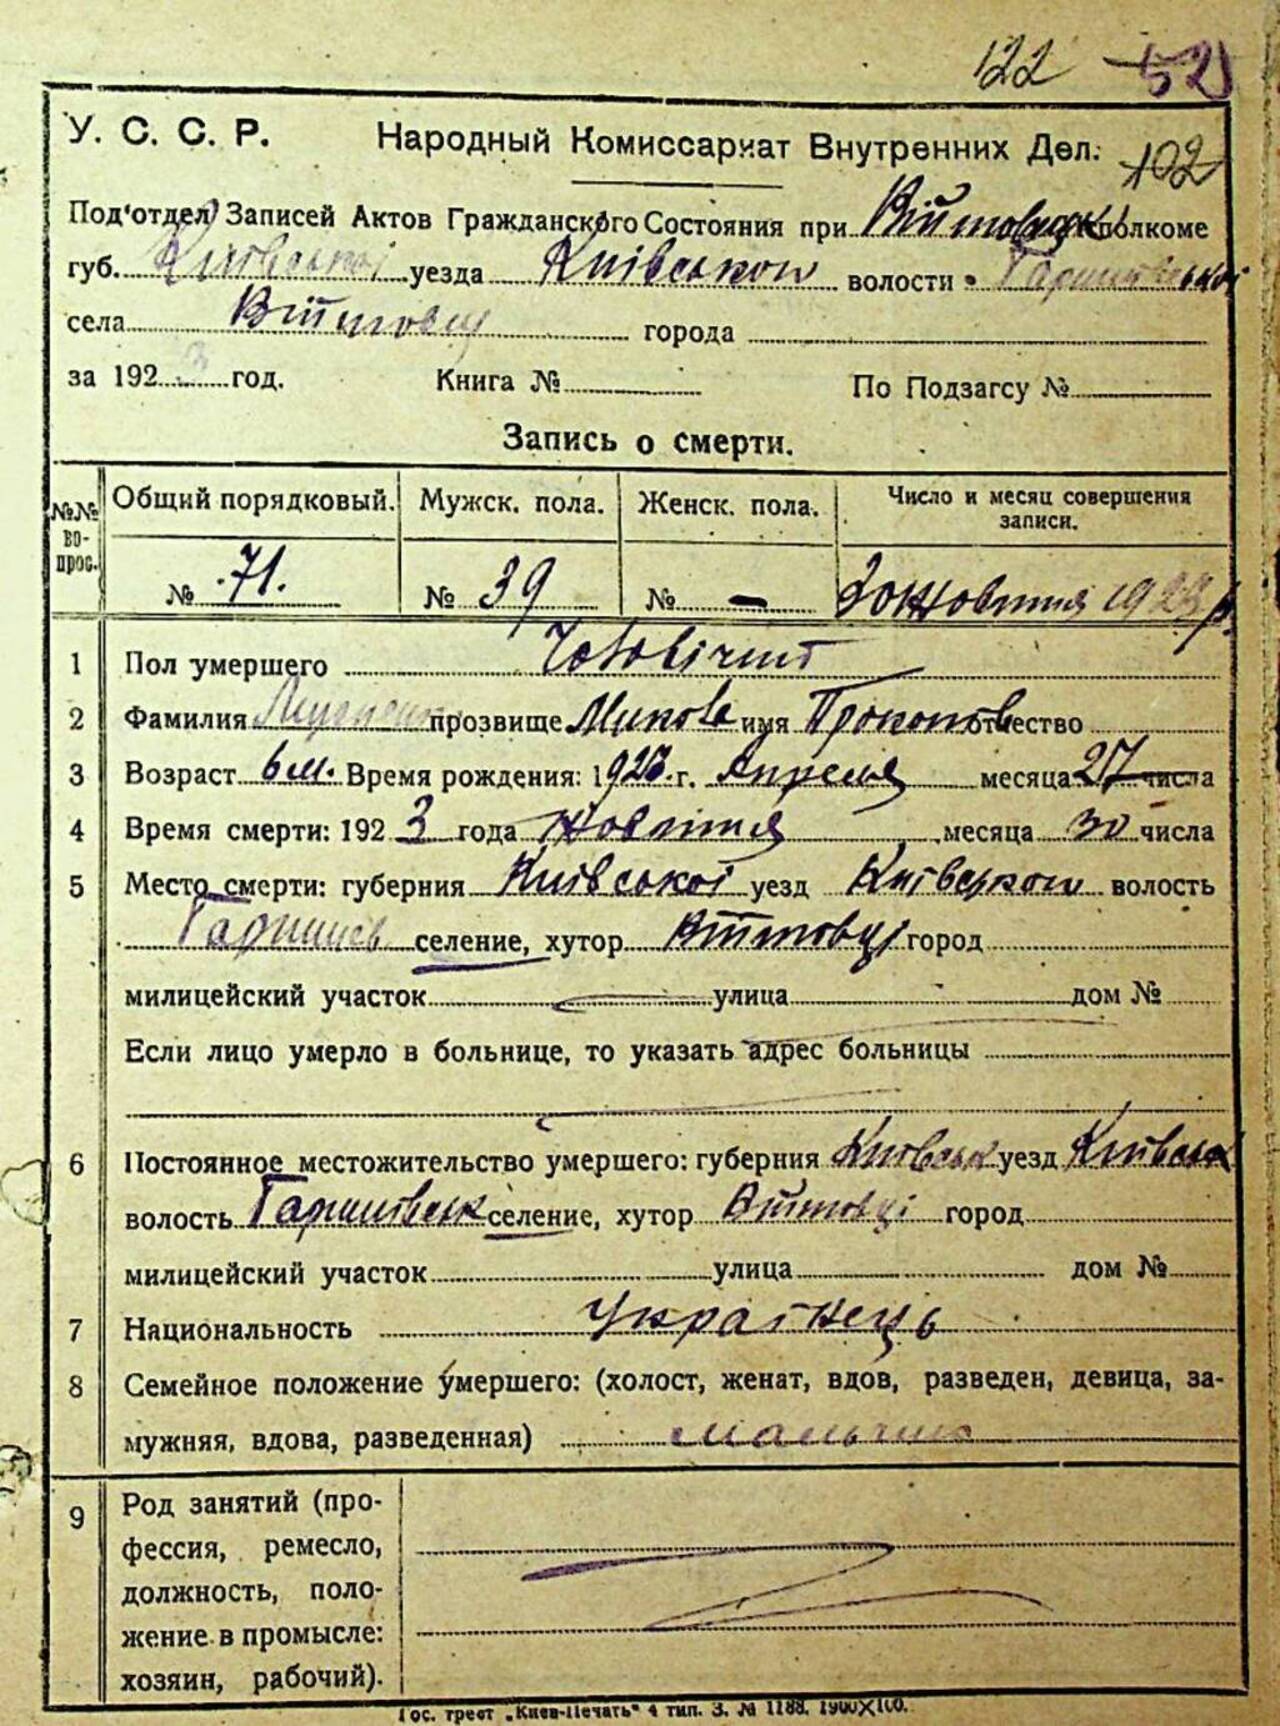 122 52
У. С. С. Р. Народный Комиссариат Внутренних Дел. 102
Под'отдел Записей Актов Гражданского Состояния при полкоме
губ. Київської уезда Київської волости
села Війтовці города
за 1923 год. Книга № По Подзагсу №
Запись о смерти.
№№ вопрос. Общий порядковый. Мужск. пола. Женск. пола. Число и месяц совершения записи.
№ 71. № 39 № — 30 Жовтня 1923 р.
1 Пол умершего Чоловічий
2 Фамилия прозвище Микола имя Прокопов отчество
3 Возраст 6 м. Время рождения: 1923 г. Апреля месяца 27 числа
4 Время смерти: 1923 года Жовтня месяца 30 числа
5 Место смерти: губерния Київської уезд Київської волость
селение, хутор Війтовці город
милицейский участок улица дом №
Если лицо умерло в больнице, то указать адрес больницы
6 Постоянное местожительство умершего: губерния Київськ уезд Київськ
волость селение, хутор Війтовці город
милицейский участок улица дом №
7 Национальность Українець
8 Семейное положение умершего: (холост, женат, вдов, разведен, девица, за-
мужняя, вдова, разведенная) мальчик
9 Род занятий (про-
фессия, ремесло,
должность, поло-
жение в промысле:
хозяин, рабочий).
Гос. трест „Киев-Печать" 4 тип. З. № 1188. 1900×100.